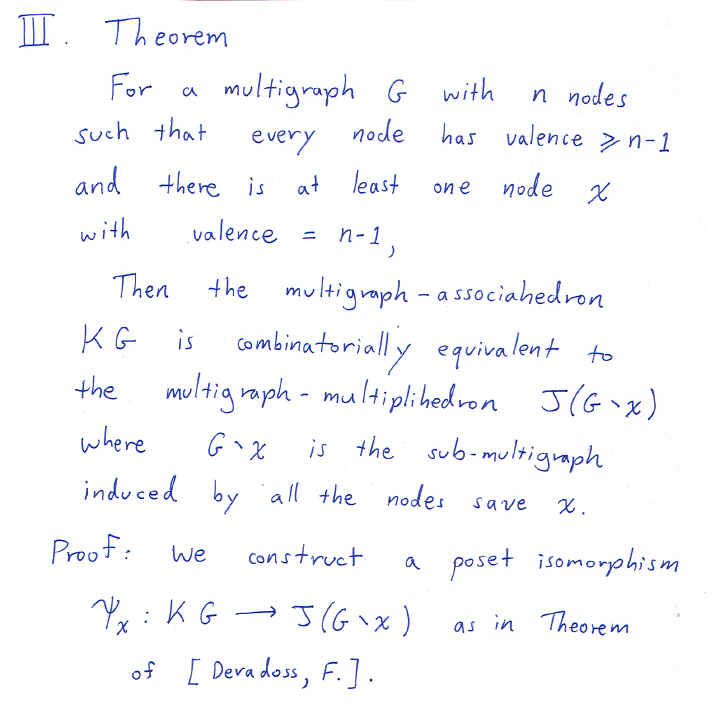 III. Theorem
For a multigraph G with n nodes
such that every node has valence ⩾ n-1
and there is at least one node x
with valence = n-1,
Then the multigraph-associahedron
KG is combinatorially equivalent to
the multigraph-multiplihedron J(G∖x)
where G∖x is the sub-multigraph
induced by all the nodes save x.
Proof: We construct a poset isomorphism
Ψₓ : KG ⟶ J(G∖x) as in Theorem
of [Devadoss, F.].